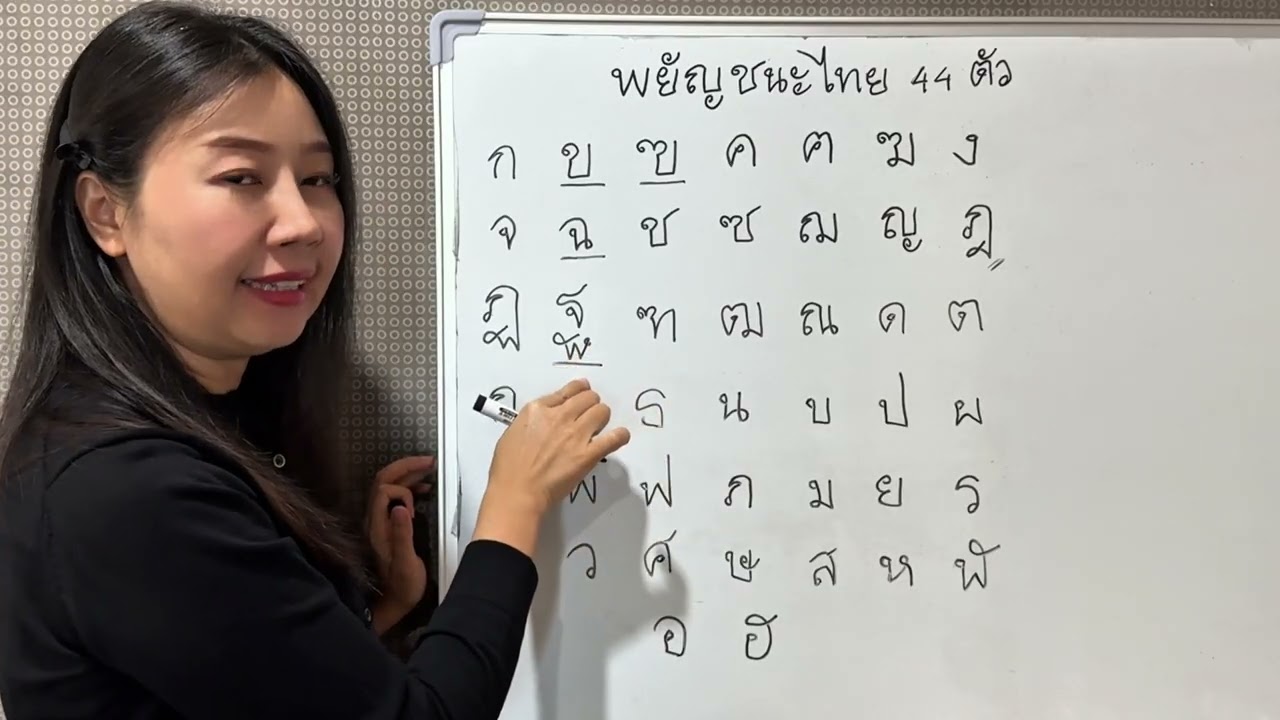 พยัญชนะไทย 44 ตัว
ก ข ฃ ค ฅ ฆ ง
จ ฉ ช ซ ฌ ญ ฎ
ฏ ฐ ฑ ฒ ณ ด ต
ธ น บ ป ผ
พ ฟ ภ ม ย ร
ว ศ ษ ส ห ฬ
อ ฮ